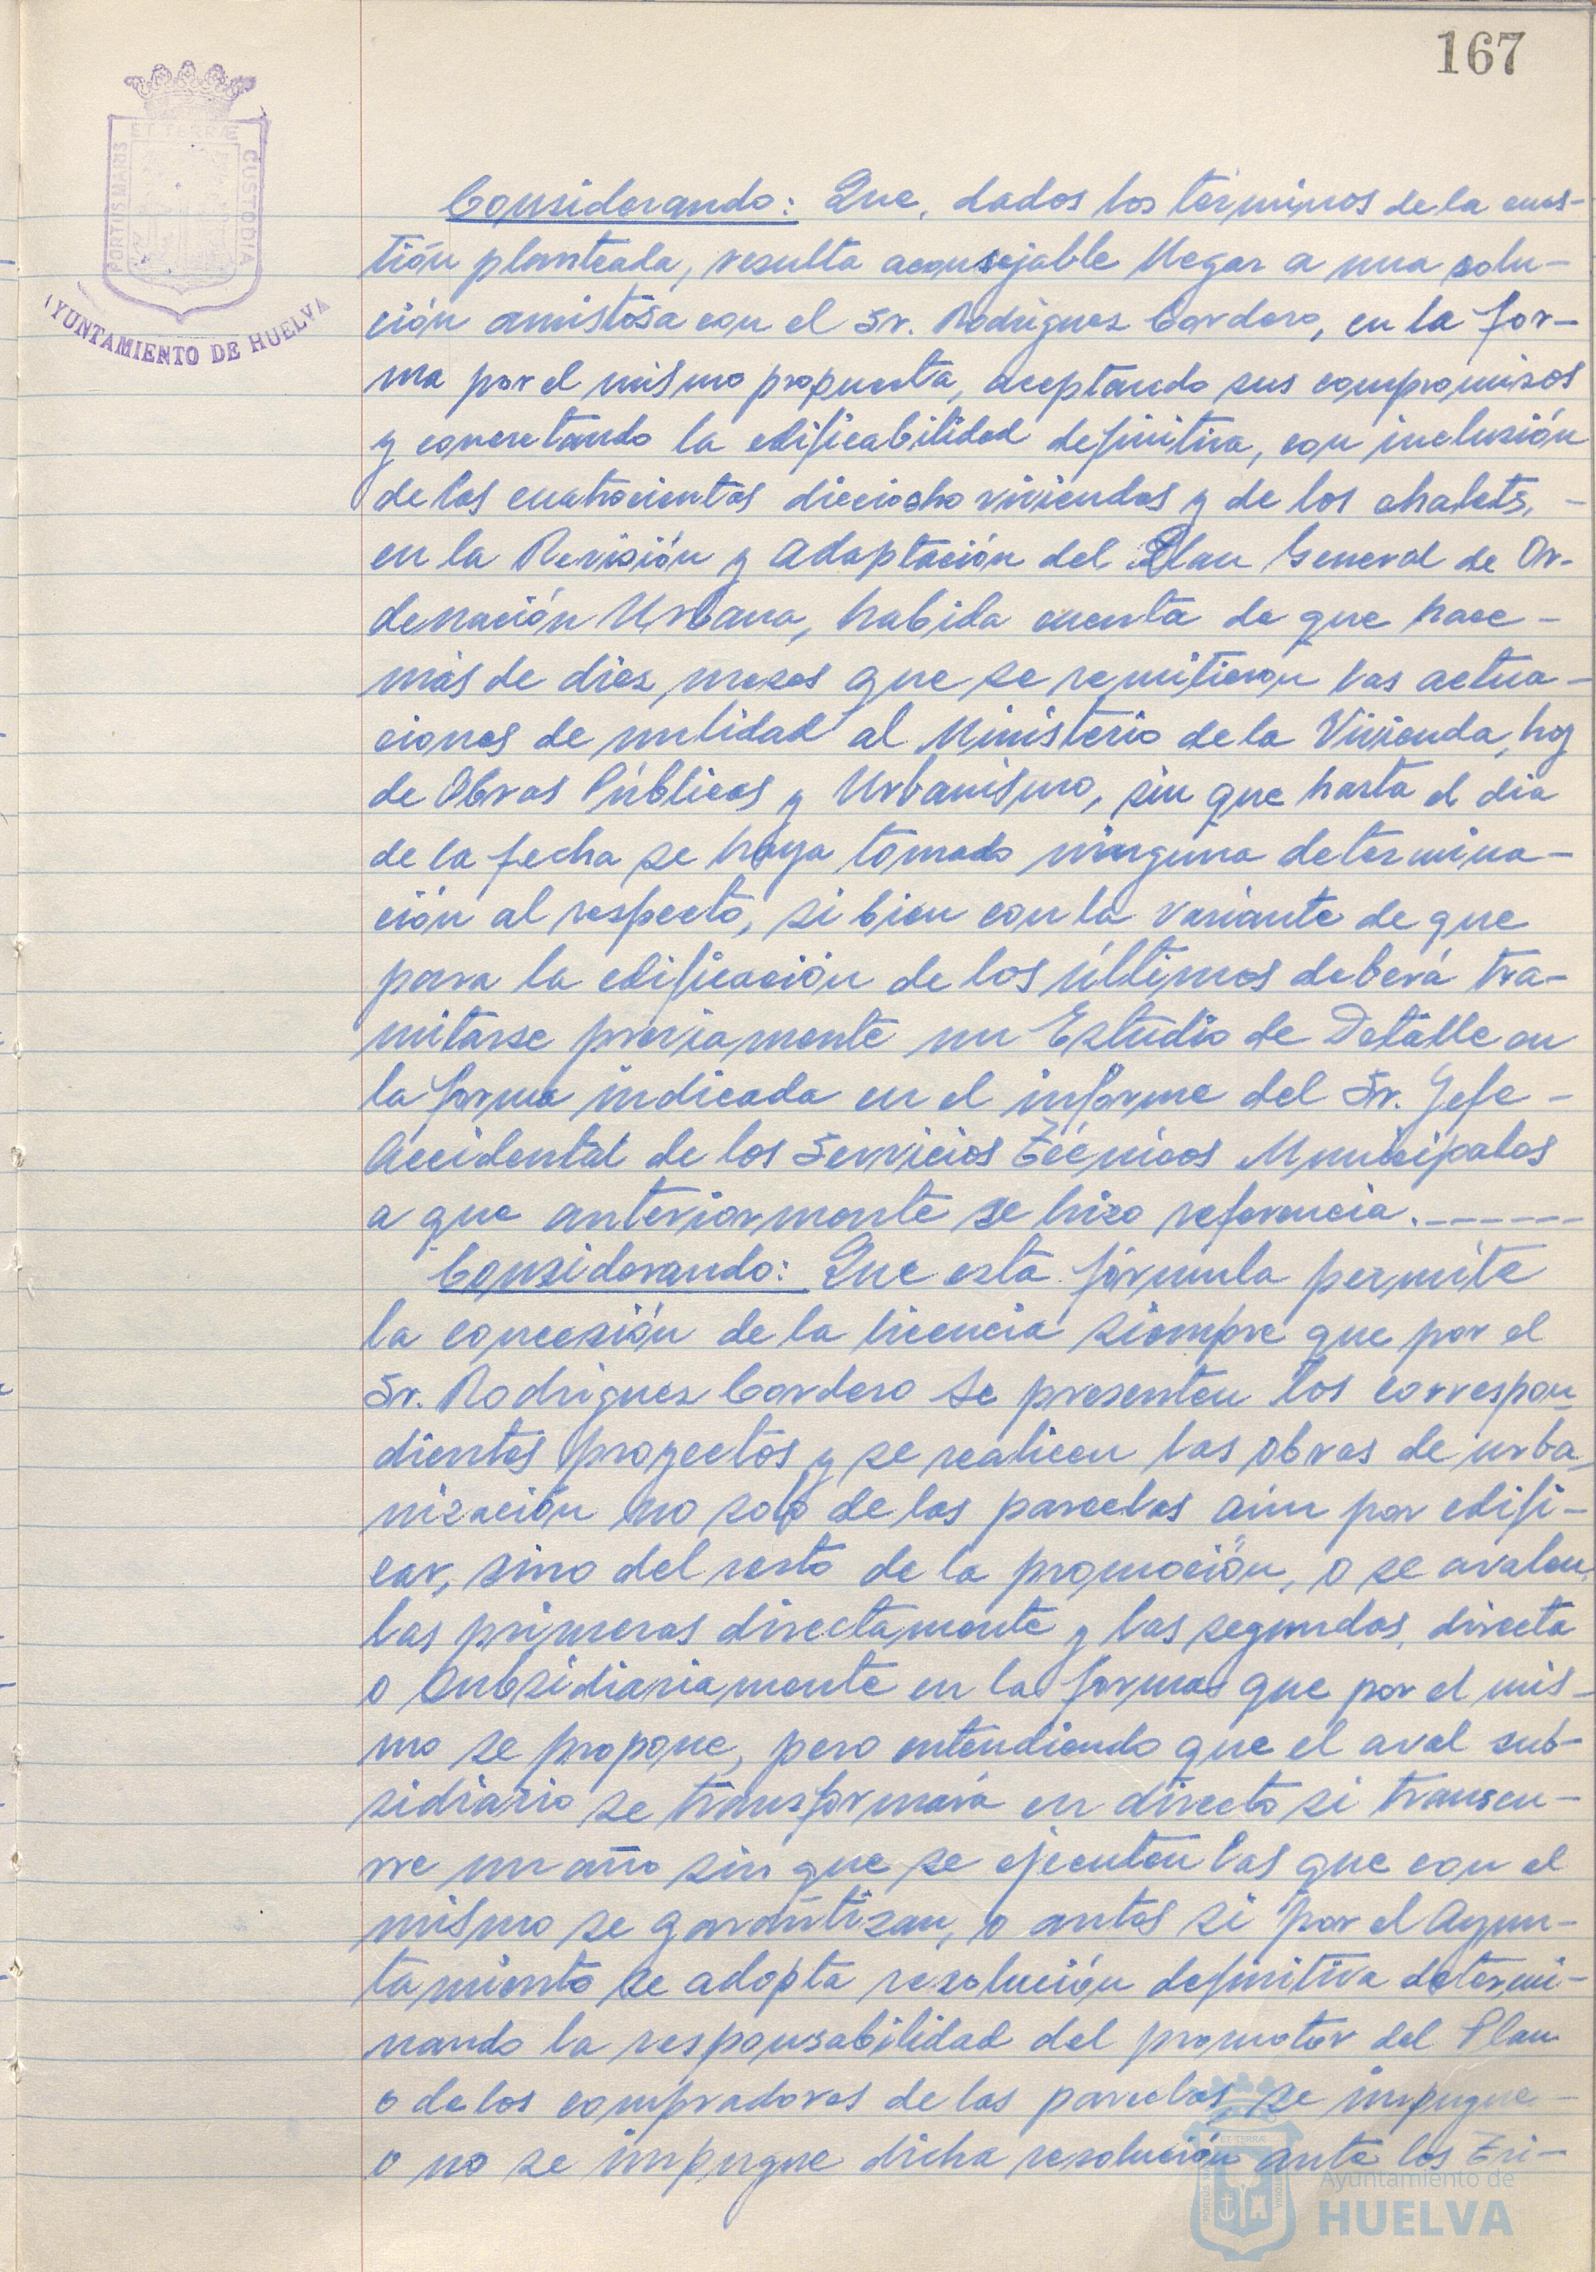 167
ET TERRÆ
PORTUS MARIS
CUSTODIA
AYUNTAMIENTO DE HUELVA
Considerando: Que, dados los términos de la cues-
tión planteada, resulta aconsejable llegar a una solu-
ción amistosa con el Sr. Rodríguez Cordero, en la for-
ma por el mismo propuesta, aceptando sus compromisos
y concretando la edificabilidad definitiva, con inclusión
de las cuatrocientas dieciocho viviendas y de los chalets, -
en la Revisión y Adaptación del Plan General de Or-
denación Urbana, habida cuenta de que hace -
más de diez meses que se remitieron las actua-
ciones de nulidad al Ministerio de la Vivienda, hoy
de Obras Públicas y Urbanismo, sin que hasta el dia
de la fecha se haya tomado ninguna determina-
ción al respecto, si bien con la variante de que
para la edificación de los últimos deberá tra-
mitarse previamente un Estudio de Detalle en
la forma indicada en el informe del Sr. Jefe -
Accidental de los Servicios Técnicos Municipales
a que anteriormente se hizo referencia.------
Considerando: Que esta fórmula permite
la concesión de la licencia siempre que por el
Sr. Rodríguez Cordero se presenten los correspon-
dientes proyectos y se realicen las obras de urba-
nización no solo de las parcelas aún por edifi-
car, sino del resto de la promoción, o se avalen
las primeras directamente y las segundas, directa
o subsidiariamente en la forma que por el mis-
mo se propone, pero entendiendo que el aval sub-
sidiario se transformará en directo si transcu-
rre un año sin que se ejecuten las que con el
mismo se garantizan, o antes si por el Ayun-
tamiento se adopta resolución definitiva determi-
nando la responsabilidad del promotor del Plan
o de los compradores de las parcelas, se impugne -
o no se impugne dicha resolución ante los Tri-
Ayuntamiento de
HUELVA